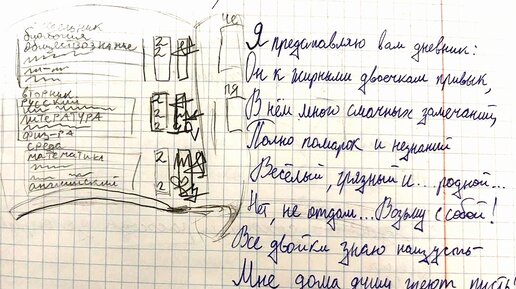 понедельник
биология
обществознание
вторник
русский
литература
физ-ра
среда
математика
английский
2
2
2
2
2
2
2
че
пя
Я представляю вам дневник:
Он к жирным двоечкам привык,
В нём много смачных замечаний,
Полно помарок и незнаний
Весёлый, грядный и.... родной...
Нет, не отдам... Возьму с собой!
Все двойки знаю наизусть-
Мне дома душу греют пусть!